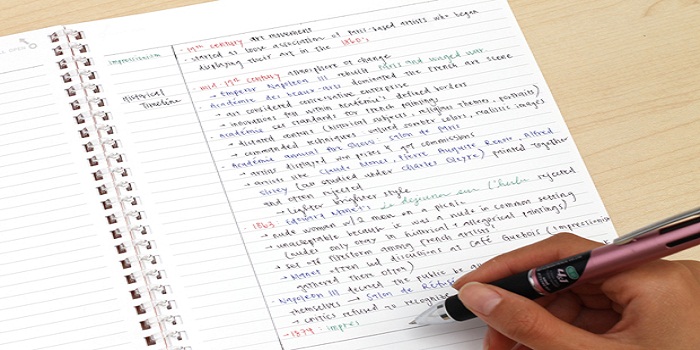 Impressionism
Historical
Timeline
· 19th century art movement
· started as loose association of Paris-based artists who began
displaying their art in the 1860's
· mid-19th century atmosphere of change
→ Emperor Napoleon III rebuilt Paris and waged war
· Académie des Beaux-Arts dominated the French art scene
→ art considered conservative enterprise
→ innovations fall within Académie's defined borders
· Académie set standards for French painting
→ dictated content (historical subjects, religious themes, portraits)
→ commanded techniques valued somber colors, realistic images
· Académie annual art show: Salon de Paris
→ artists displayed win prizes & get commissions
→ artists like Claude Monet, Pierre Auguste Renoir, Alfred
Sisley (all studied under Charles Gleyre) painted together
and often rejected
→ lighter brighter style
· 1863 Edouard Manet's Le déjeuner sur l'herbe rejected
→ nude woman w/ 2 men on a picnic
→ unacceptable because it was a nude in common setting
(nudes only okay in historical & allegorical paintings)
→ set off firestorm among French artists
→ Manet often led discussions at Café Guerbois (Impressionis
gathered there often)
· Napoleon III decreed the public be
themselves → Salon de
→ critics refused to recogni
· 1874 - impres